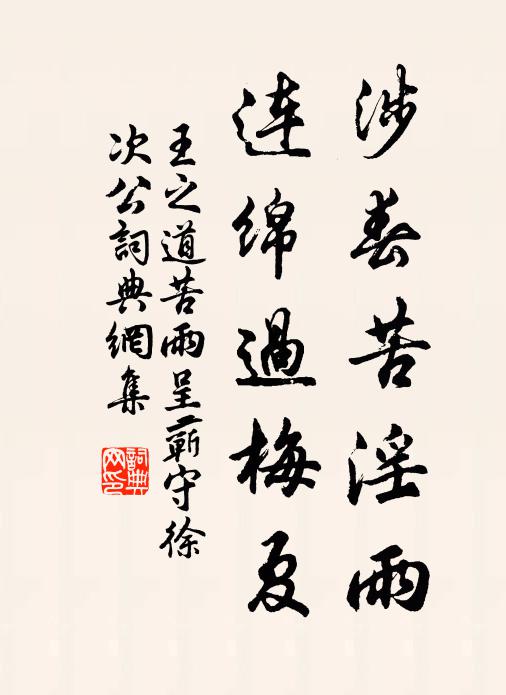 涉春苦淫雨
连绵過梅夏
王之道苦雨呈蕲守徐
次公詞典網集
詞典网印